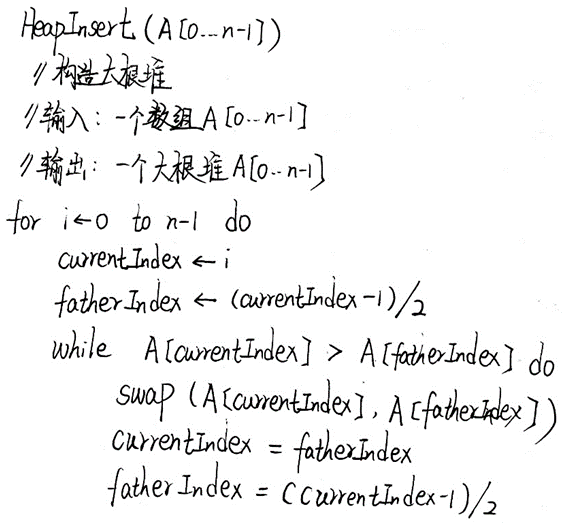 HeapInsert (A[0...n-1])
// 构造大根堆
// 输入: 一个数组 A[0...n-1]
// 输出: 一个大根堆 A[0..n-1]
for i ← 0 to n-1 do
currentIndex ← i
fatherIndex ← (currentIndex-1)/2
while A[currentIndex] > A[fatherIndex] do
swap (A[currentIndex], A[fatherIndex])
currentIndex = fatherIndex
fatherIndex = (currentIndex-1)/2